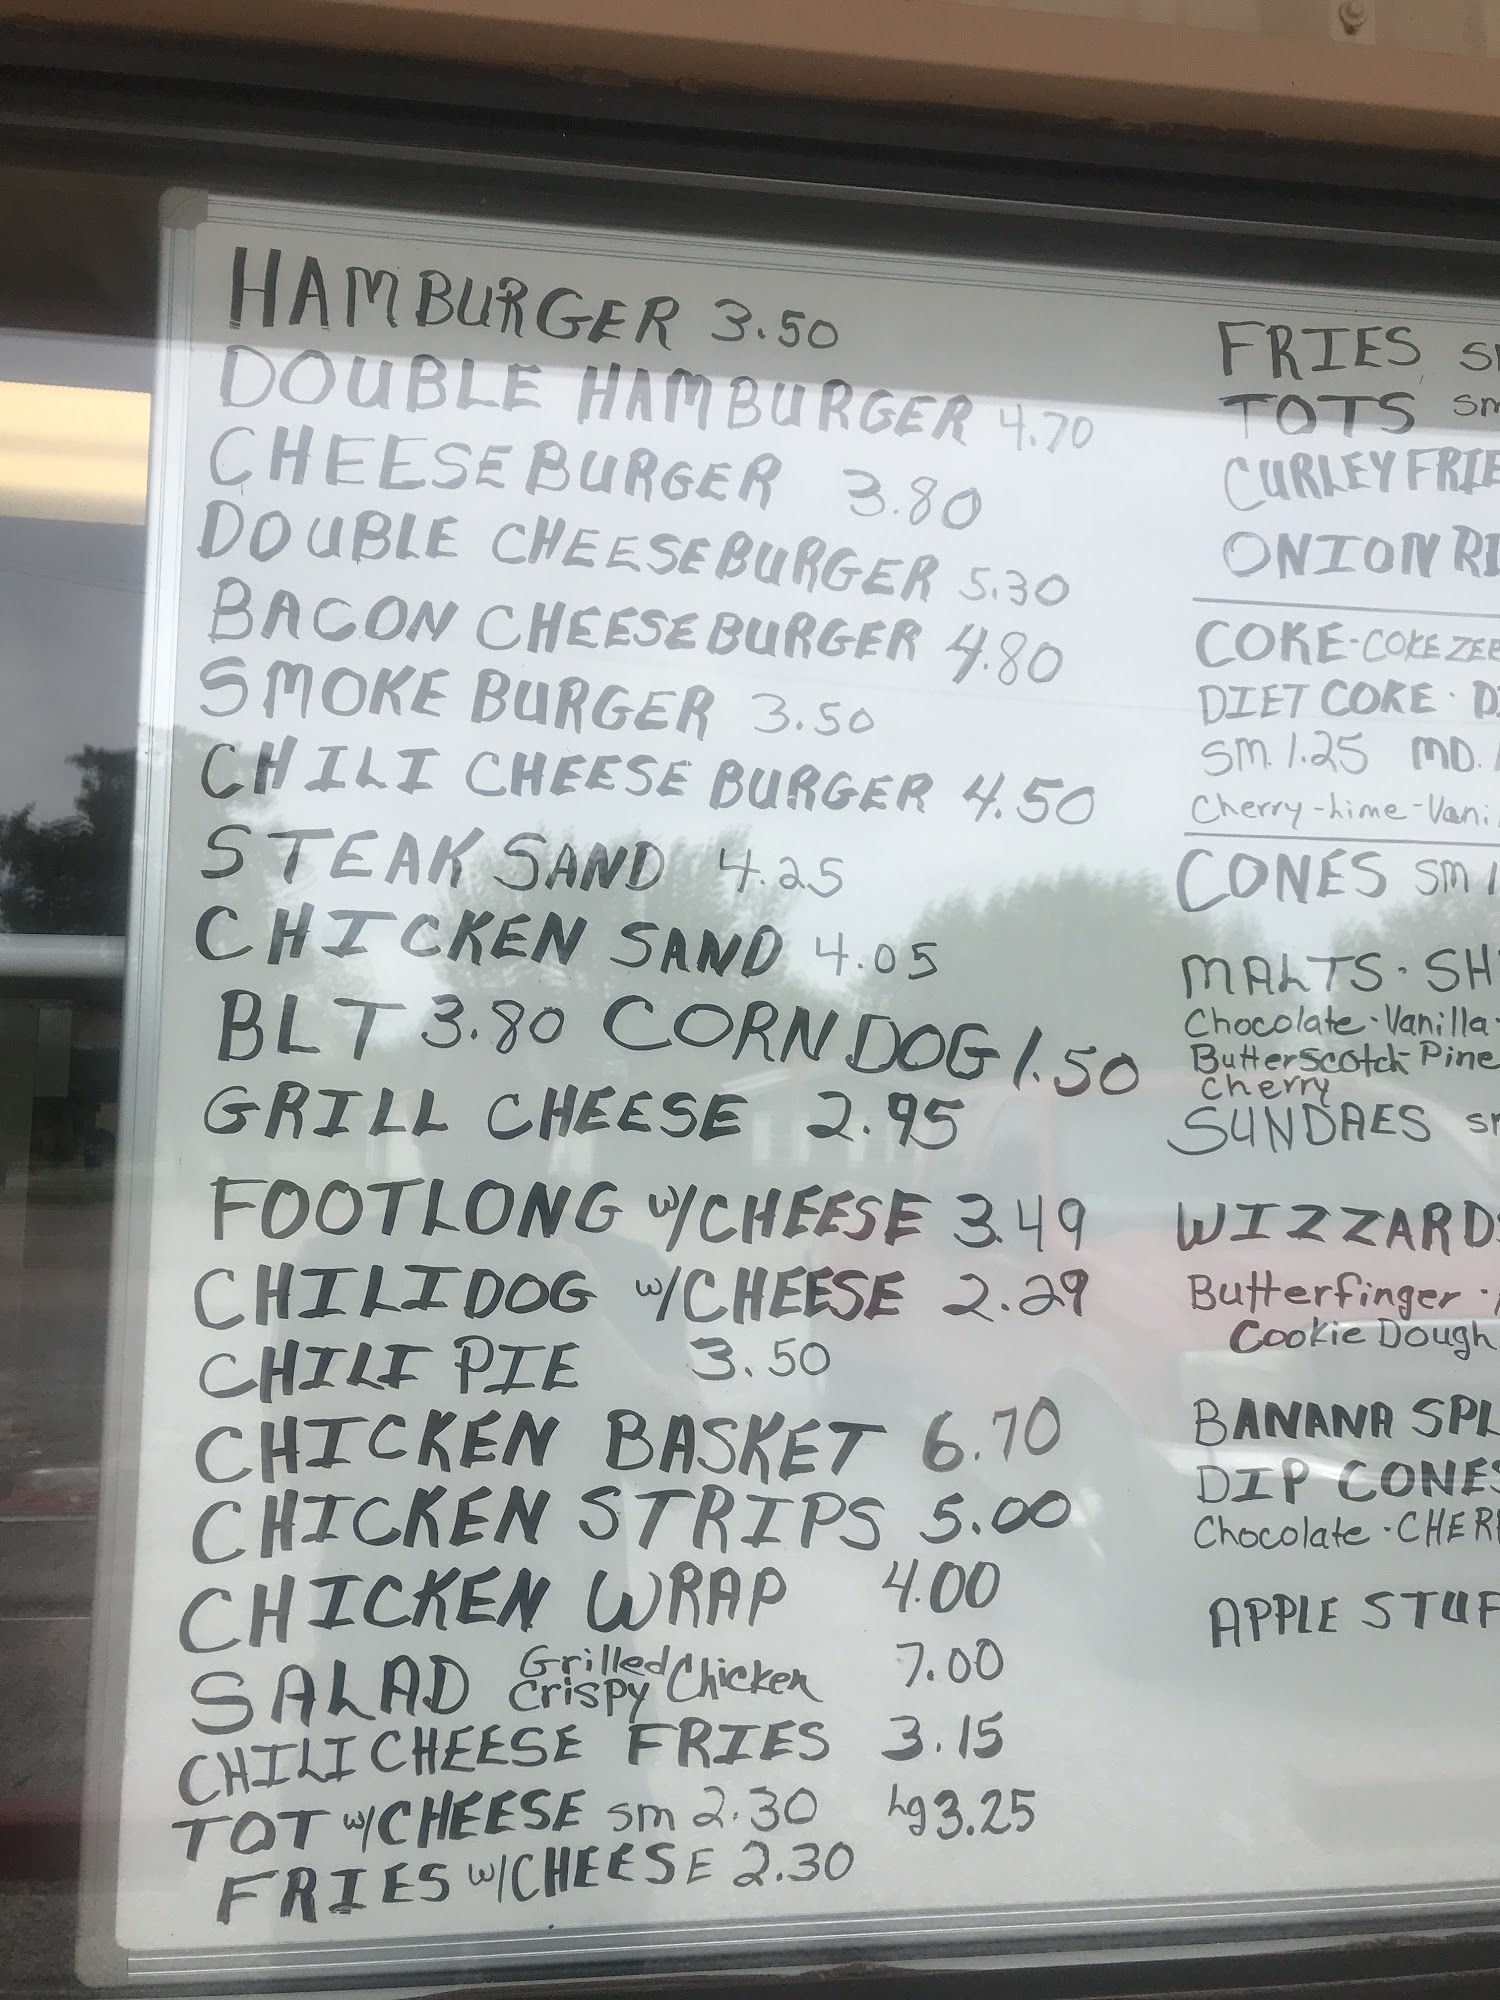 HAMBURGER 3.50
DOUBLE HAMBURGER 4.70
CHEESEBURGER 3.80
DOUBLE CHEESEBURGER 5.30
BACON CHEESEBURGER 4.80
SMOKE BURGER 3.50
CHILI CHEESE BURGER 4.50
STEAK SAND 4.25
CHICKEN SAND 4.05
BLT 3.80 CORN DOG 1.50
GRILL CHEESE 2.95
FOOTLONG w/CHEESE 3.49
CHILIDOG w/CHEESE 2.29
CHILI PIE 3.50
CHICKEN BASKET 6.70
CHICKEN STRIPS 5.00
CHICKEN WRAP 4.00
SALAD Grilled Crispy Chicken 7.00
CHILI CHEESE FRIES 3.15
TOT w/CHEESE sm 2.30 Lg 3.25
FRIES w/CHEESE 2.30
FRIES
TOTS
CURLEY FRIE
ONION RI
COKE-COKE ZER
DIET COKE · D
SM. 1.25 MD.
Cherry-Lime-Vani
CONES SM 1
MALTS · SH
Chocolate-Vanilla-
Butterscotch-Pine
cherry
SUNDAES
WIZZARDS
Butterfinger ·
Cookie Dough
BANANA SPL
DIP CONES
Chocolate · CHER
APPLE STUF